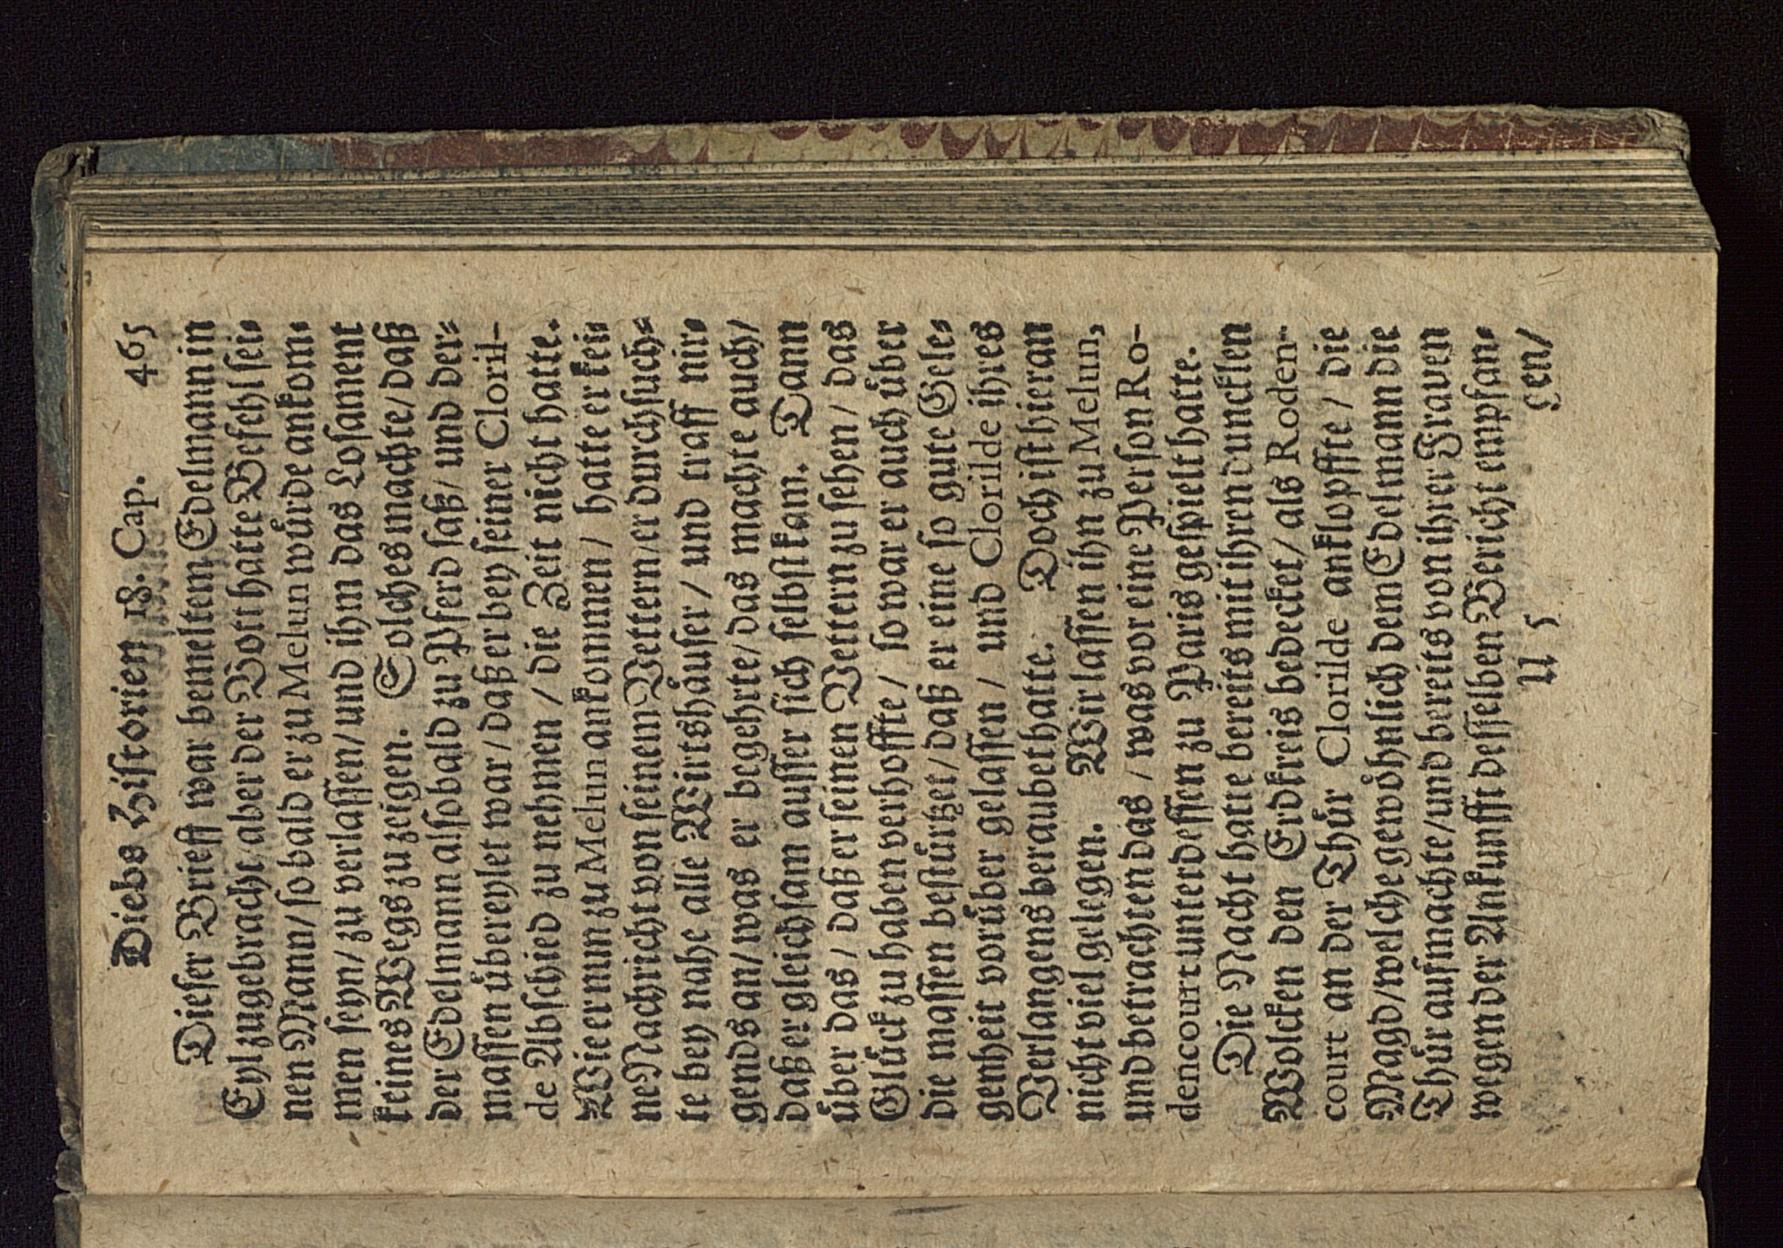 Diebs Historien 18. Cap. 465
Dieser Brieff war bemeltem Edelmann in
Eyl zugebracht, aber der Bott hatte Befehl sei-
nen Mann/ so bald er zu Melun würde ankom-
men seyn/ zu verlassen/ und ihm das Losament
keines Wegs zu zeigen. Solches machte/ daß
der Edelmann alsobald zu Pferd saß/ und der-
massen übereylet war/ daß er bey seiner Cloril-
de Abschied zu nehmen / die Zeit nicht hatte.
Wie er nun zu Melun ankommen/ hatte er kei-
ne Nachricht von seinem Vettern/ er durchsuch-
te bey nahe alle Wirtshäuser / und traff nir-
gends an/ was er begehrte/ das machte auch/
daß er gleichsam ausser sich selbst kam. Dann
über das / daß er seinen Vettern zu sehen / das
Glück zu haben verhoffte / so war er auch über
die massen bestürtzet/ daß er eine so gute Gele-
genheit vorüber gelassen / und Clorilde ihres
Verlangens beraubet hatte. Doch ist hieran
nicht viel gelegen. Wir lassen ihn zu Melun,
und betrachten das / was vor eine Person Ro-
dencourt unterdessen zu Paris gespielt hatte.
Die Nacht hatte bereits mit ihren duncklen
Wolcken den Erdkreis bedecket/ als Roden-
court an der Thür Clorilde anklopffte / die
Magd/ welche gewöhnlich dem Edelmann die
Thür aufmachte/ und bereits von ihrer Frauen
wegen der Ankunfft desselben Bericht empfan-
U 5 gen/